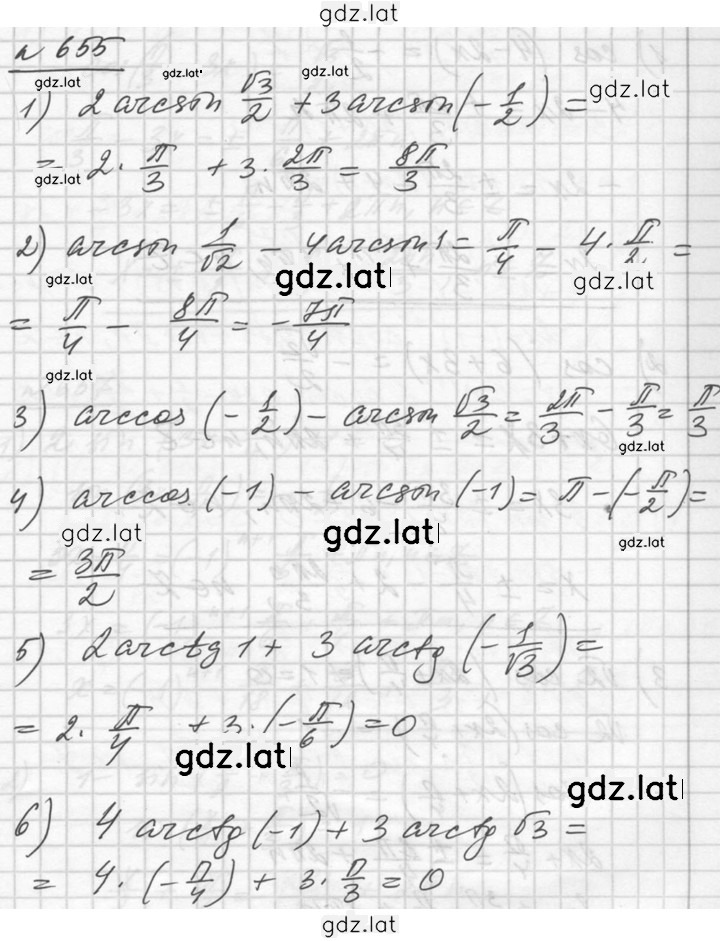 gdz.lat
№ 655
gdz.lat gdz.lat gdz.lat gdz.lat
1) 2 arcsin √3/2 + 3 arcsin (-1/2) =
gdz.lat
= 2 · π/3 + 3 · 2π/3 = 8π/3
2) arcsin 1/√2 - 4 arcsin 1 = π/4 - 4 · π/2 =
gdz.lat gdz.lat gdz.lat
= π/4 - 8π/4 = -7π/4
gdz.lat
3) arccos (-1/2) - arcsin √3/2 = 2π/3 - π/3 = π/3
gdz.lat
4) arccos (-1) - arcsin (-1) = π - (-π/2) =
gdz.lat gdz.lat gdz.lat
= 3π/2
5) 2 arctg 1 + 3 arctg (-1/√3) =
= 2 · π/4 + 3 · (-π/6) = 0
gdz.lat
gdz.lat
6) 4 arctg (-1) + 3 arctg √3 =
= 4 · (-π/4) + 3 · π/3 = 0
gdz.lat